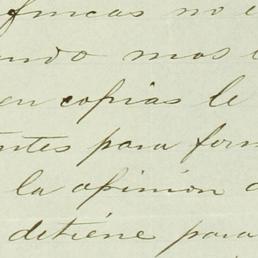 fincas no
ndo mas
en copias le
ntes para for
la opinión
detiene para